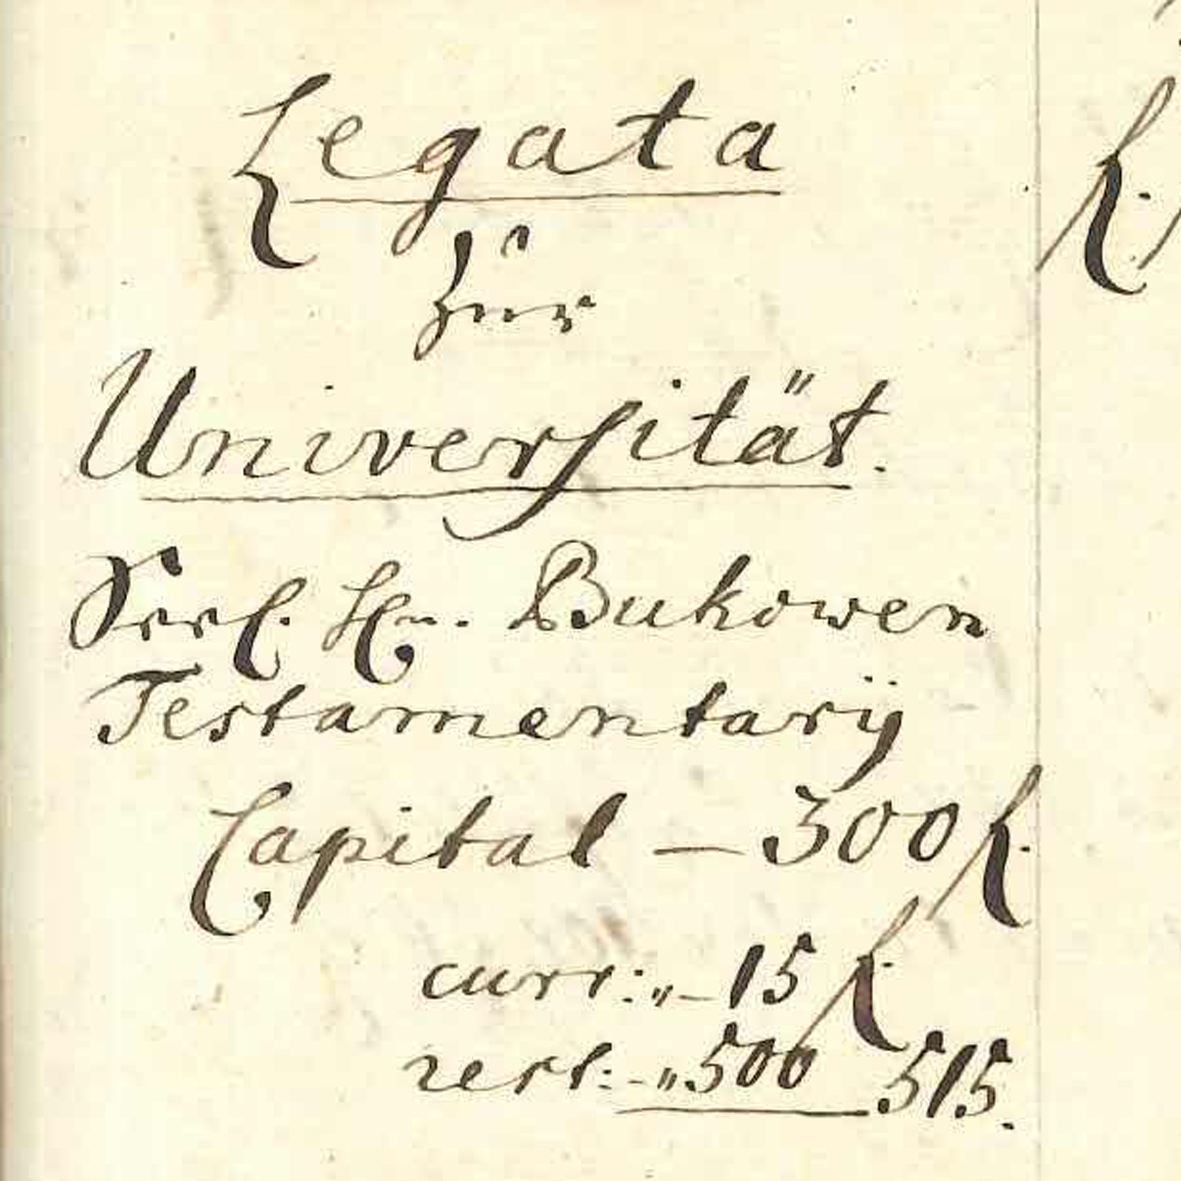 Legata
zur
Universität.
Seel. Hn. Bukowen
Testamentarÿ
Capital — 300 f.
curr: „ — 15 f.
rest: - „ 500 515.